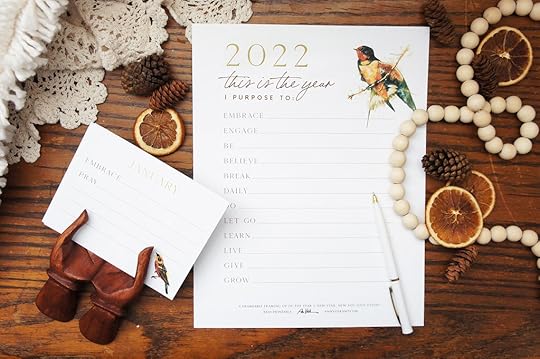 2022
this is the year
I PURPOSE TO:
EMBRACE
ENGAGE
BE
BELIEVE
BREAK
DAILY
DO
LET GO
LEARN
LIVE
GIVE
GROW
JANUARY
EMBRACE
PRAY